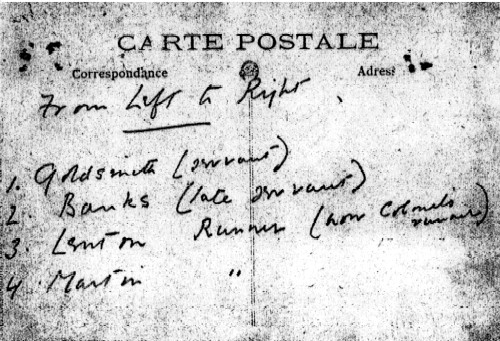 CARTE POSTALE
Correspondance Adress
From Left to Right
1. Goldsmith (servant)
2. Banks (late servant)
3. Lenton Runner (now Colonels runner)
4. Martin "